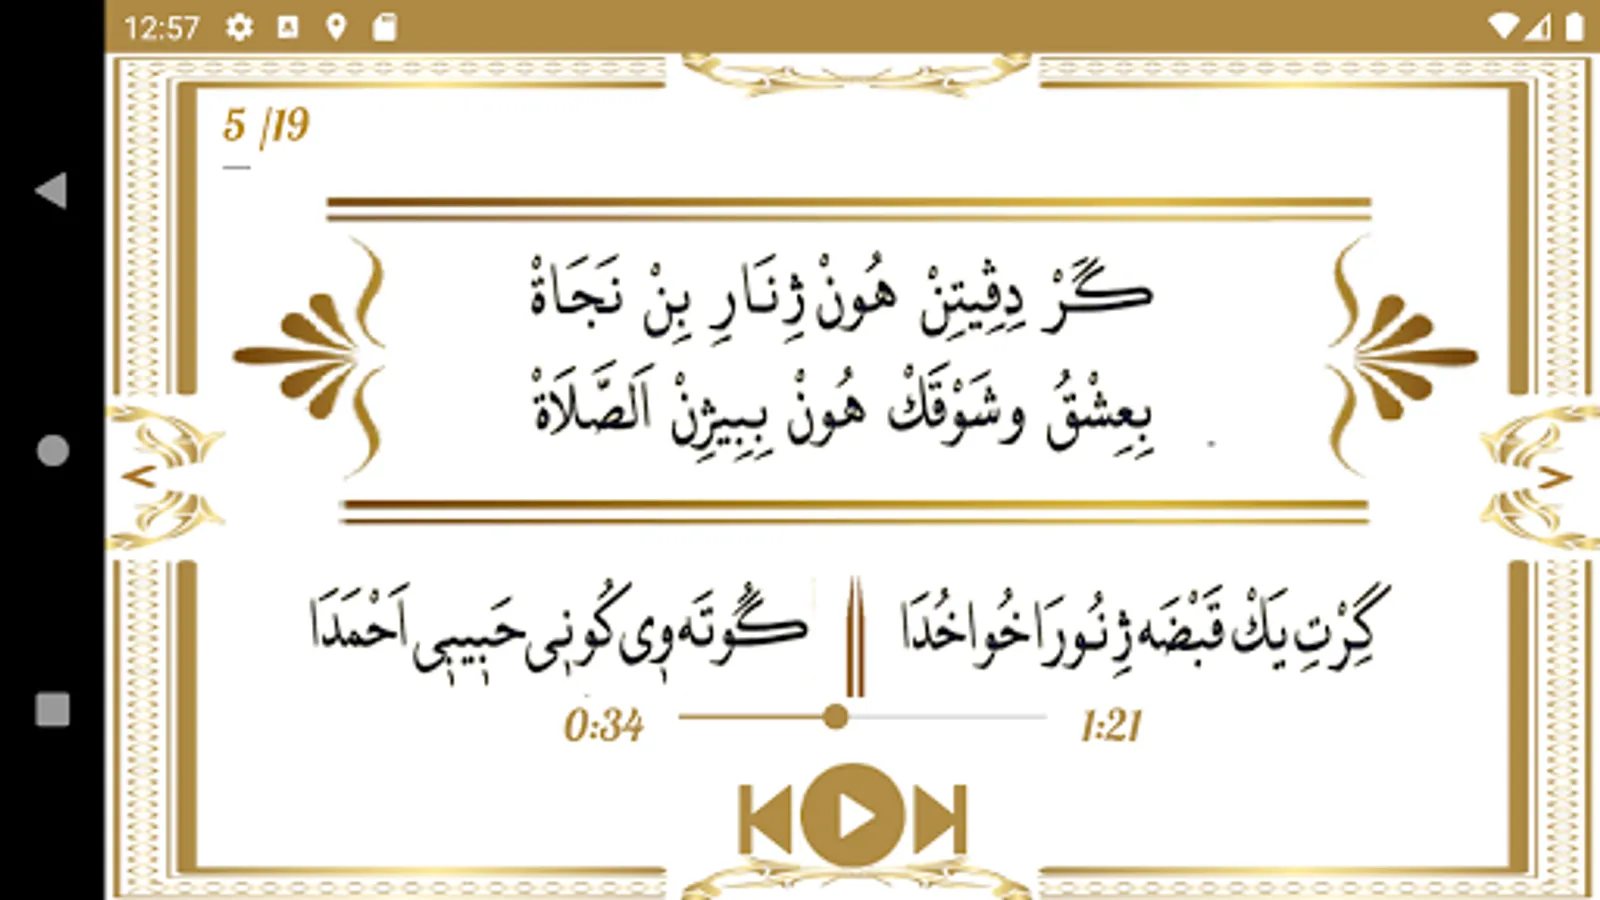 12:57
5 /19
گَرْ دِڤِيتِنْ هُونْ ژِنَارِ بِنْ نَجَاةْ
بِعِشْقُ وشَوْقَكْ هُونْ بِبِيژِنْ اَلصَّلَاةْ
گِرْتِ يَكْ قَبْضَه ژِنُورَا خُوا خُدَا
گُوتَه وِى كُونِى حَبِيبِى اَحْمَدَا
0:34
1:21